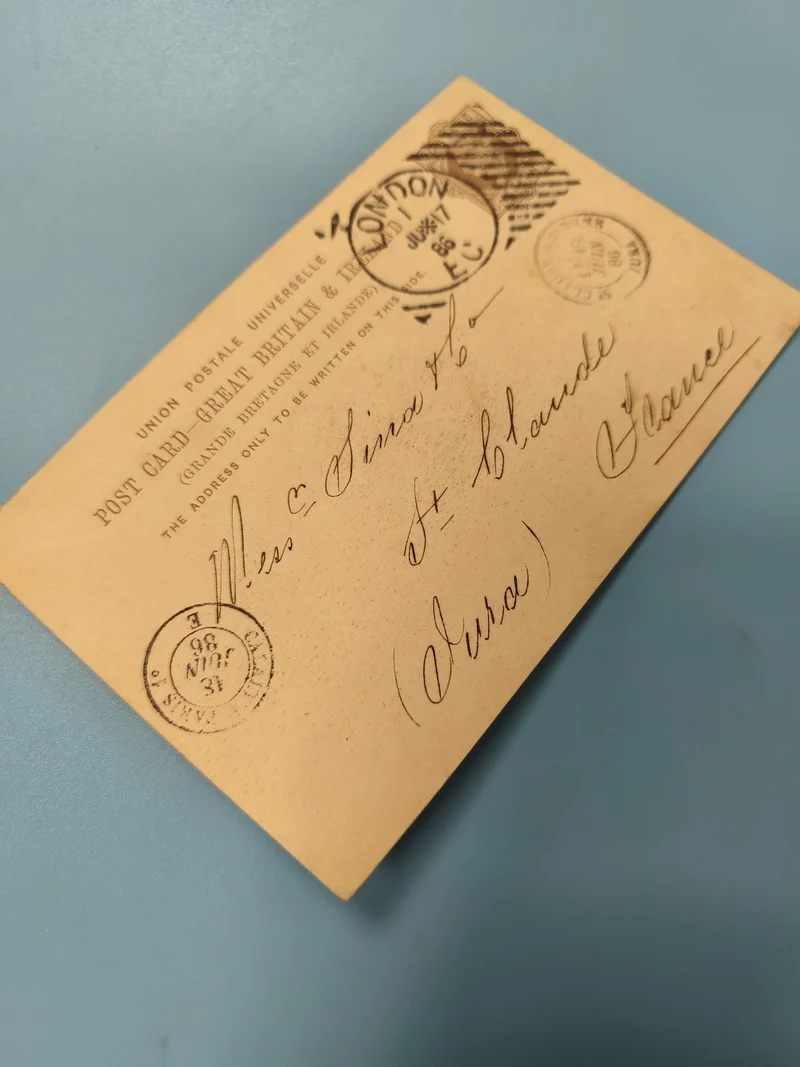 UNION POSTALE UNIVERSELLE
POST CARD—GREAT BRITAIN & IRELAND
(GRANDE BRETAGNE ET IRLANDE)
THE ADDRESS ONLY TO BE WRITTEN ON THIS SIDE.
LONDON
JU 17
86
EC
JUIN
86
JURA
Messrs Sina & Co
St Claude
(Jura)
France
CALAIS A PARIS 1º
18
JUIN
86
E